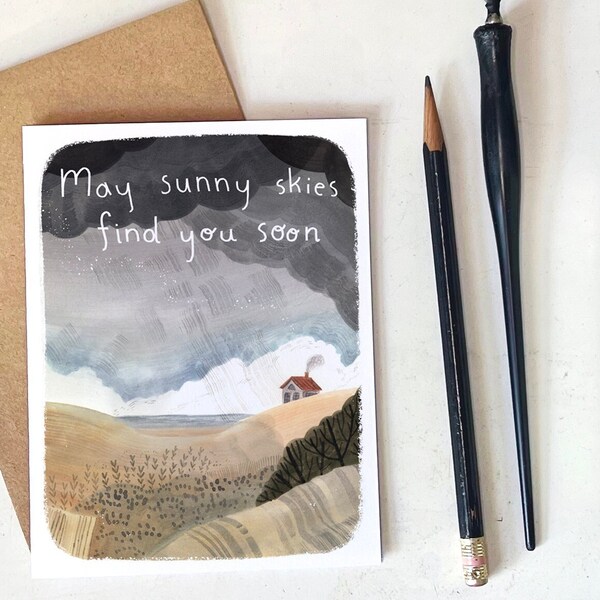 May sunny skies
find you soon